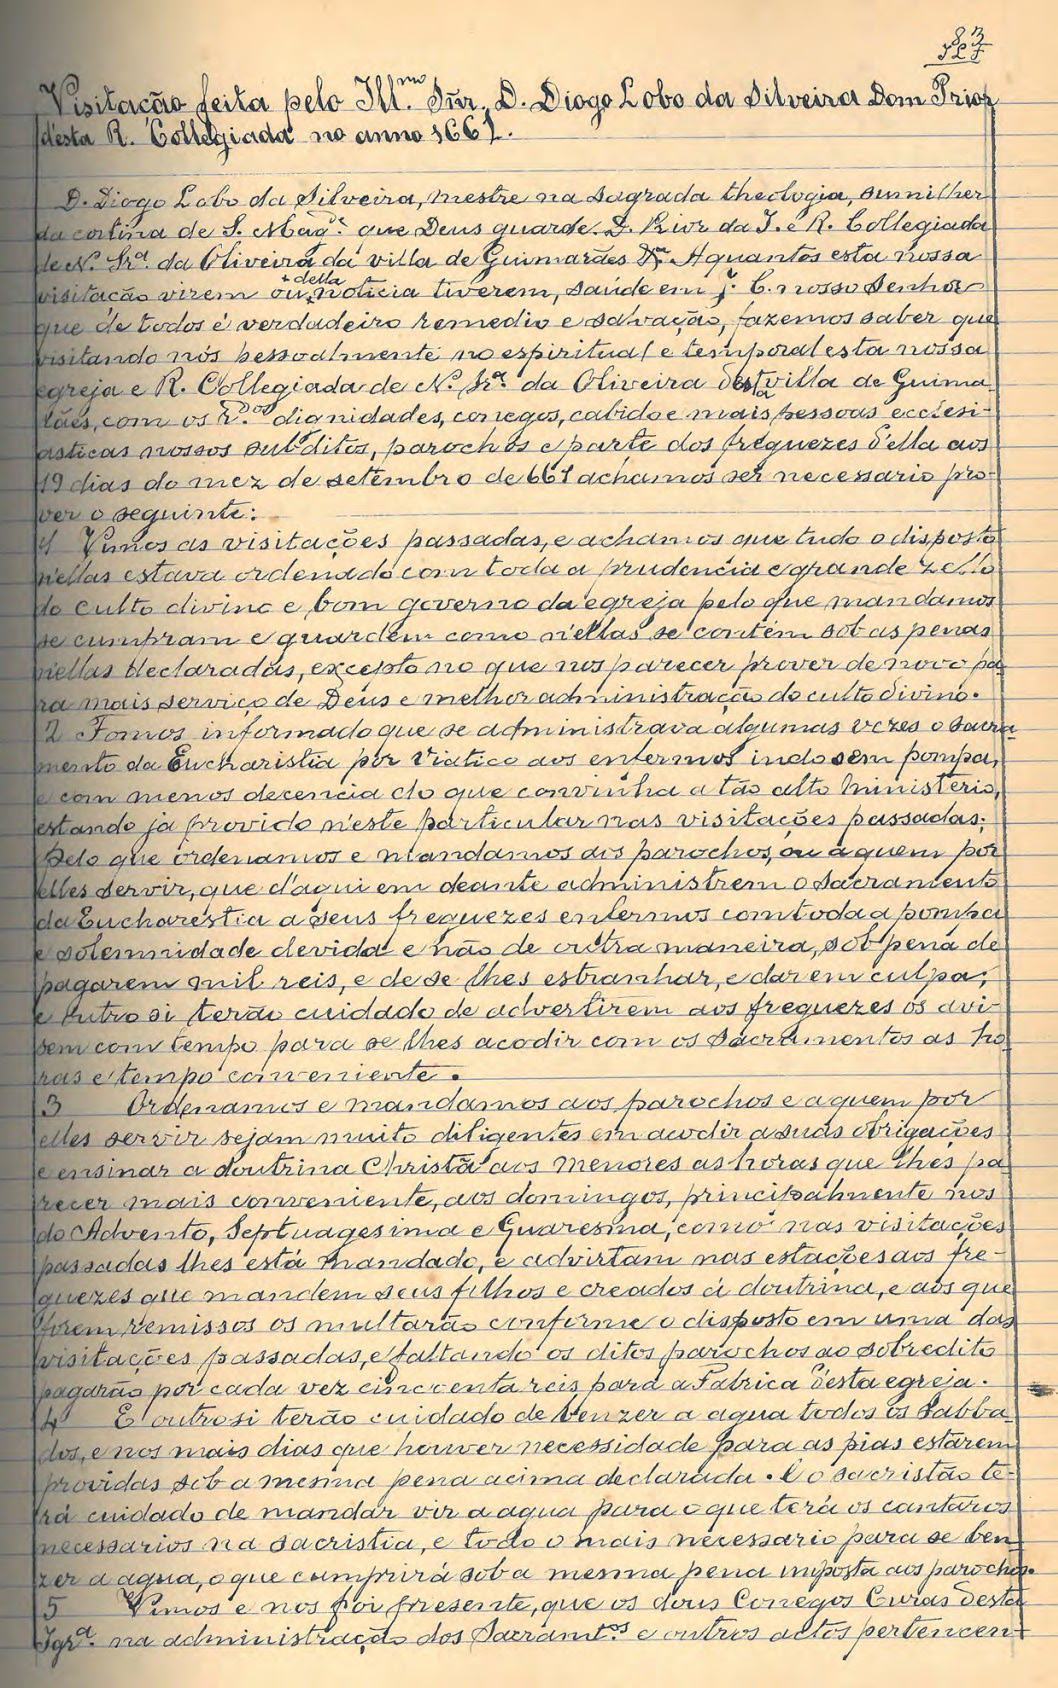 83
Visitação feita pelo Ill.mo Sñr. D. Diogo Lobo da Silveira Dom Prior
d'esta R. Collegiada no anno 1661.
D. Diogo Lobo da Silveira, mestre na sagrada theologia, sumilher
da cortina de S. Mag.e que Deus guarde. D. Prior da I. e R. Collegiada
de N. Sr.a da Oliveira da villa de Guimarães &.a A quantos esta nossa
visitação virem ou + della noticia tiverem, saúde em J. C. nosso Senhor
que de todos é verdadeiro remedio e salvação, fazemos saber que
visitando nós pessoalmente no espiritual e temporal esta nossa
egreja e R. Collegiada de N. Sr.a da Oliveira d'esta villa de Guima
rães, com os R.dos dignidades, conegos, cabido e mais pessoas ecclesi-
asticas nossos subditos, parochos e parte dos freguezes d'ella aos
19 dias do mez de setembro de 661 achamos ser necessario pro-
ver o seguinte:
1 Vimos as visitações passadas, e achamos que tudo o disposto
n'ellas estava ordenado com toda a prudencia e grande zello
do culto divino e bom governo da egreja pelo que mandamos
se cumpram e guardem como n'ellas se contém sob as penas
n'ellas declaradas, excepto no que nos parecer prover de novo pa-
ra mais serviço de Deus e melhor administração do culto divino.
2 Fomos informado que se administrava algumas vezes o sacra-
mento da Eucharistia por viatico aos enfermos indo sem pompa,
e com menos decencia do que convinha a tão alto ministerio,
estando já provido n'este particular nas visitações passadas;
Pelo que ordenamos e mandamos aos parochos, ou a quem por
elles servir, que d'aqui em deante administrem o sacramento
da Eucharestia a seus freguezes enfermos com toda a pompa
e solemnidade devida e não de outra maneira, sob pena de
pagarem mil reis, e de se lhes estranhar, e dar em culpa;
e outro si terão cuidado de advertirem aos freguezes os avi-
sem com tempo para se lhes acodir com os sacramentos as ho-
ras e tempo conveniente.
3 Ordenamos e mandamos aos parochos e a quem por
elles servir sejam muito diligentes em acodir a suas obrigações
e ensinar a doutrina Christã aos menores as horas que lhes pa-
recer mais conveniente, aos domingos, principalmente nos
do Advento, Septuagesima e Quaresma, como nas visitações
passadas lhes está mandado, e advirtam nas estações aos fre-
guezes que mandem seus filhos e creados á doutrina, e aos que
forem remissos os multarão conforme o disposto em uma das
visitações passadas, e faltando os ditos parochos ao sobredito
pagarão por cada vez cincoenta reis para a Fabrica d'esta egreja.
4 E outrosi terão cuidado de benzer a agua todos os sabba-
dos, e nos mais dias que houver necessidade para as pias estarem
providas sob a mesma pena acima declarada. E o sacristão te-
rá cuidado de mandar vir a agua para o que terá os cantaros
necessarios na sacristia, e todo o mais necessario para se ben-
zer a agua, o que cumprirá sob a mesma pena imposta aos parochos.
5 Vimos e nos foi presente, que os dous Conegos Curas d'esta
Igr.a na administração dos Sacramt.os e outros actos pertencen-